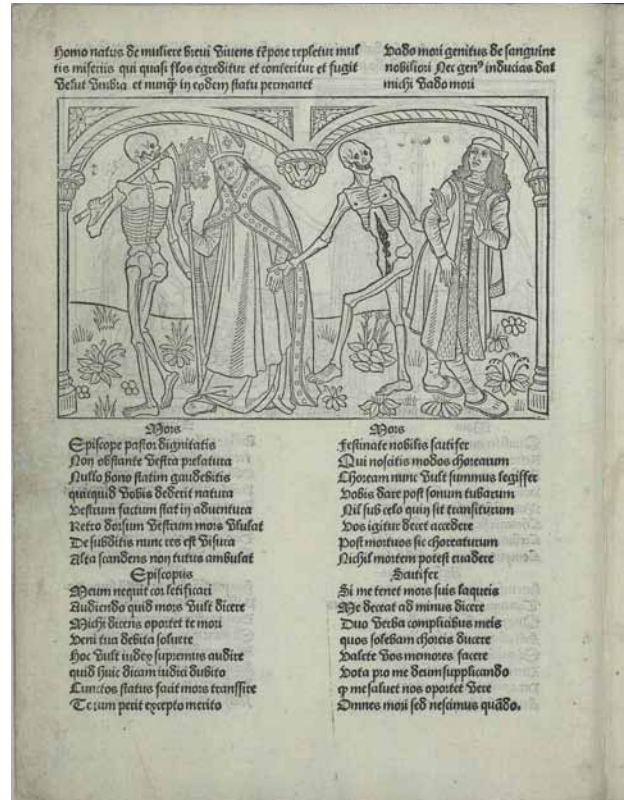 Homo natus de muliere brevi vivens tẽpore repletur mul
tis miseriis qui quasi flos egreditur et conteritur et fugit
velut umbra et nunq̃ in eodem statu permanet
Vado mori genitus de sanguine
nobiliori Nec gen⁹ inducias dat
michi Vado mori
Mors
Episcope pastor dignitatis
Non obstante vestra prelatura
Nullo bono statim gaudebitis
quicquid vobis dederit natura
Vestrum factum stat in adventura
Retro dorsum vestrum mors ululat
De subditis nunc res est visura
Alta scandens non tutus ambulat
Episcopus
Meum nequit cor letificari
Audiendo quid mors vult dicere
Michi dicens oportet te mori
Veni tua debita solvere
Hoc vult iudex supremus audire
quid huic dicam iudici dubito
Cunctos status facit mors transsire
Terum perit excepto merito
Mors
Festinate nobilis scutifer
Qui noscitis modos chorearum
Choream nunc vult summus legiffer
Vobis dare post sonum tubarum
Nil sub celo quin sit transiturum
Vos igitur decet accedere
Post mortuos sic choreaturum
Nichil mortem potest evadere
Scutifer
Si me tenet mors suis laqueis
Me deceat ad minus dicere
Duo verba complicibus meis
quos solebam choreis ducere
Valete vos memores facere
Vota pro me deum supplicando
q̃ me salvet nos oportet vere
Omnes mori sed nescimus quãdo.